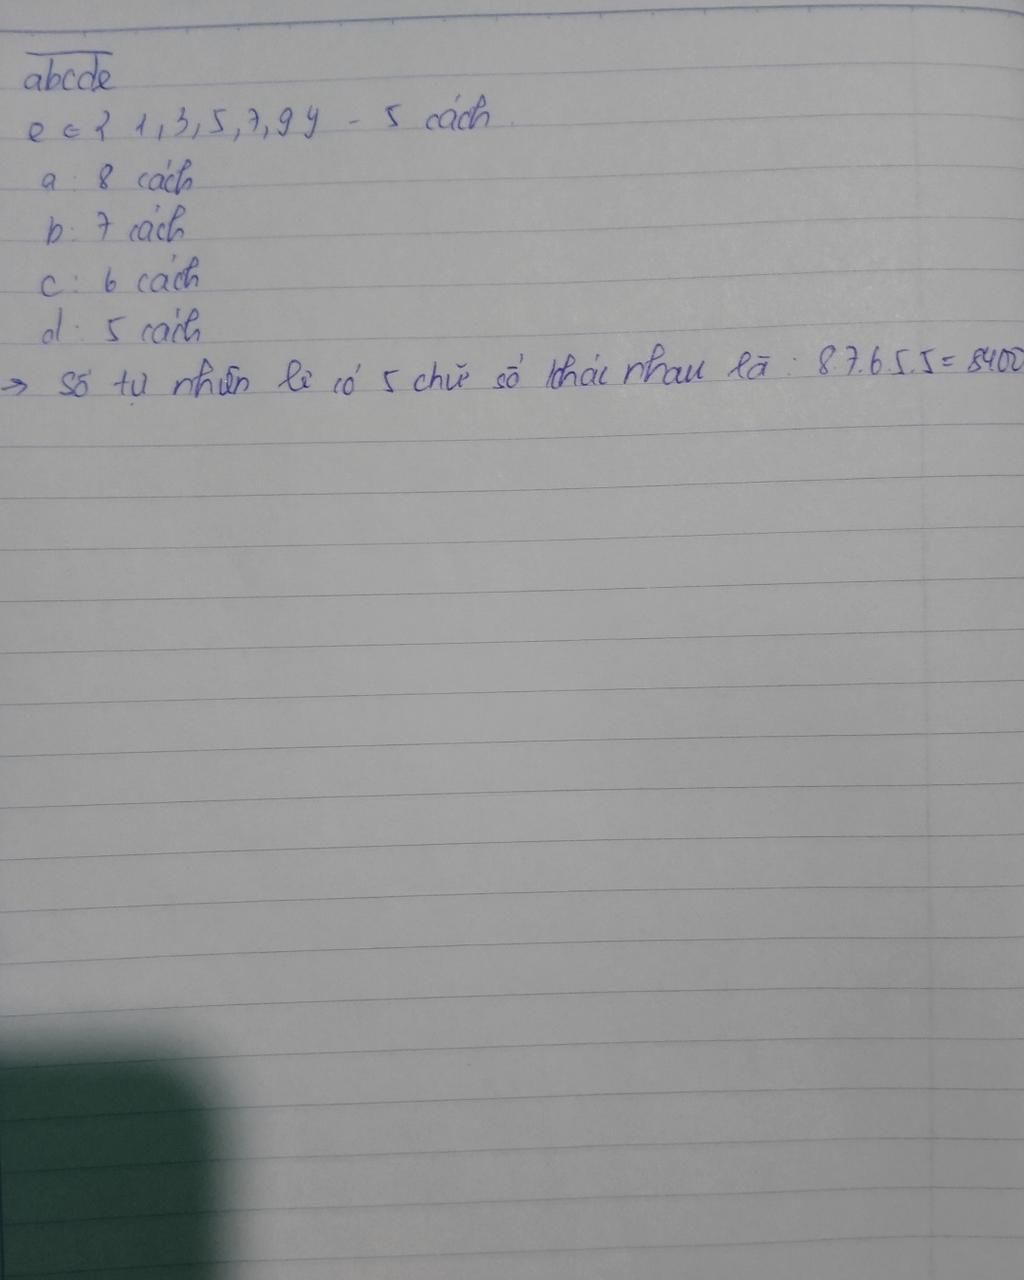 abcde
e ∈ { 1, 3, 5, 7, 9 } - 5 cách.
a : 8 cách
b : 7 cách
c : 6 cách
d : 5 cách
→ Số tự nhiên lẻ có 5 chữ số khác nhau là : 8.7.6.5.5 = 8400